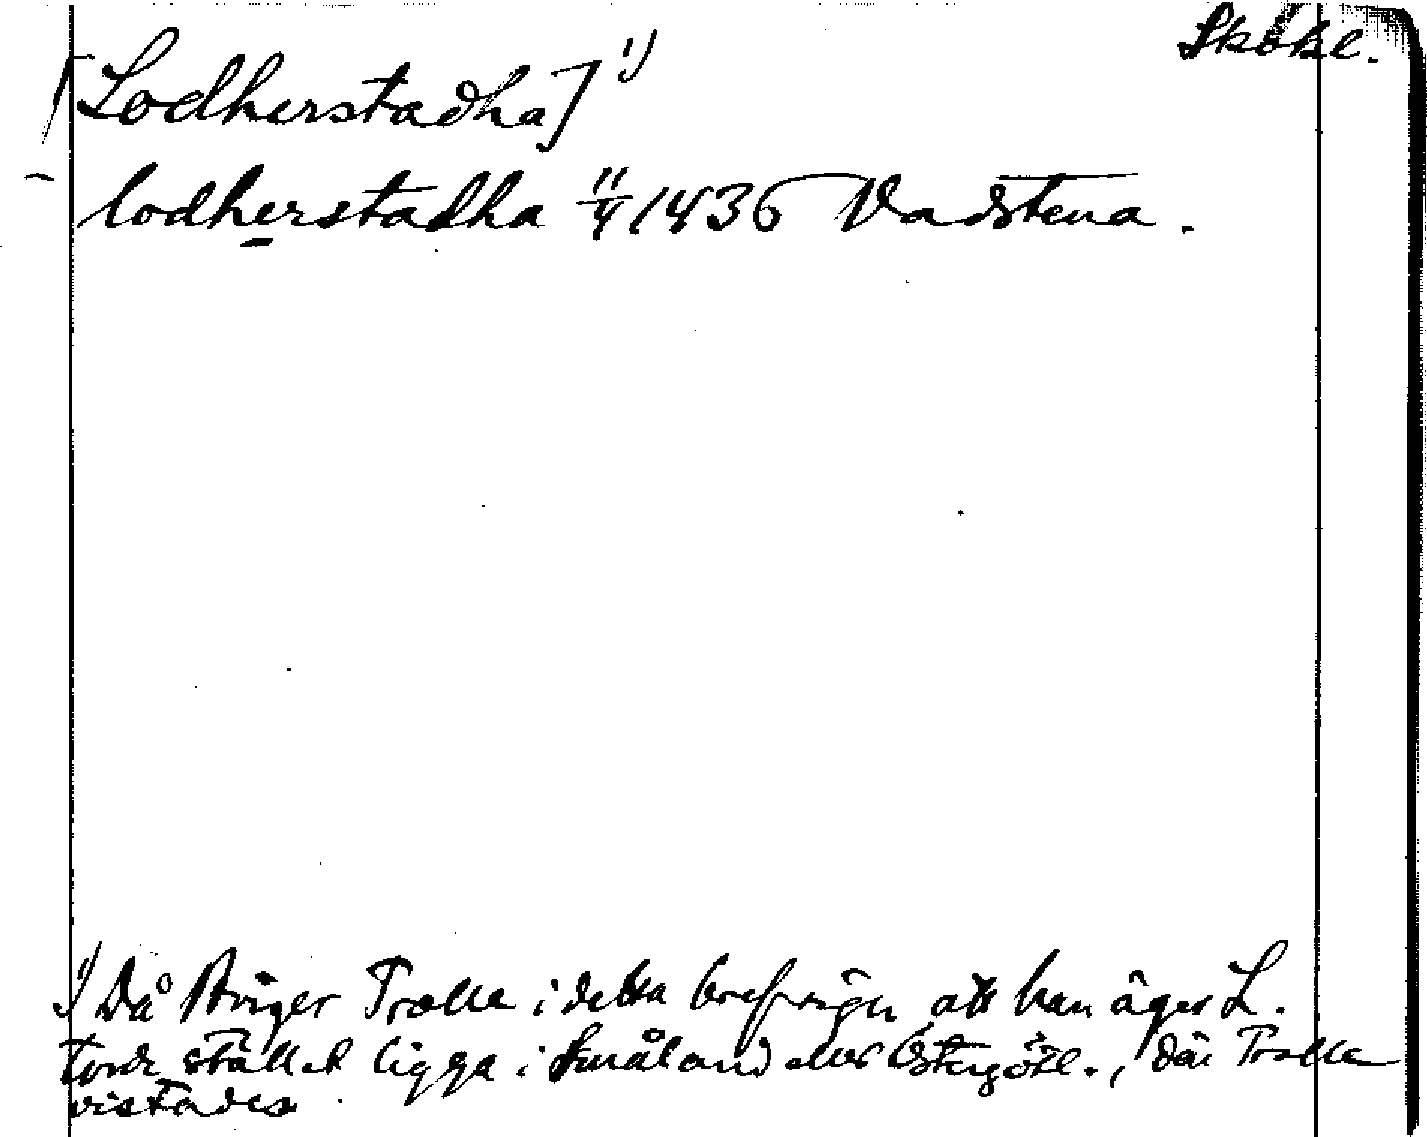 Skökl.
[Lodherstadha] 1)
lodherstadha 11/4 1436 Vadstena.
1) Då Birger Trolle i detta bref säger att han äger L.
torde stället ligga i Småland eller Östergötl., där Trolle
vistades.